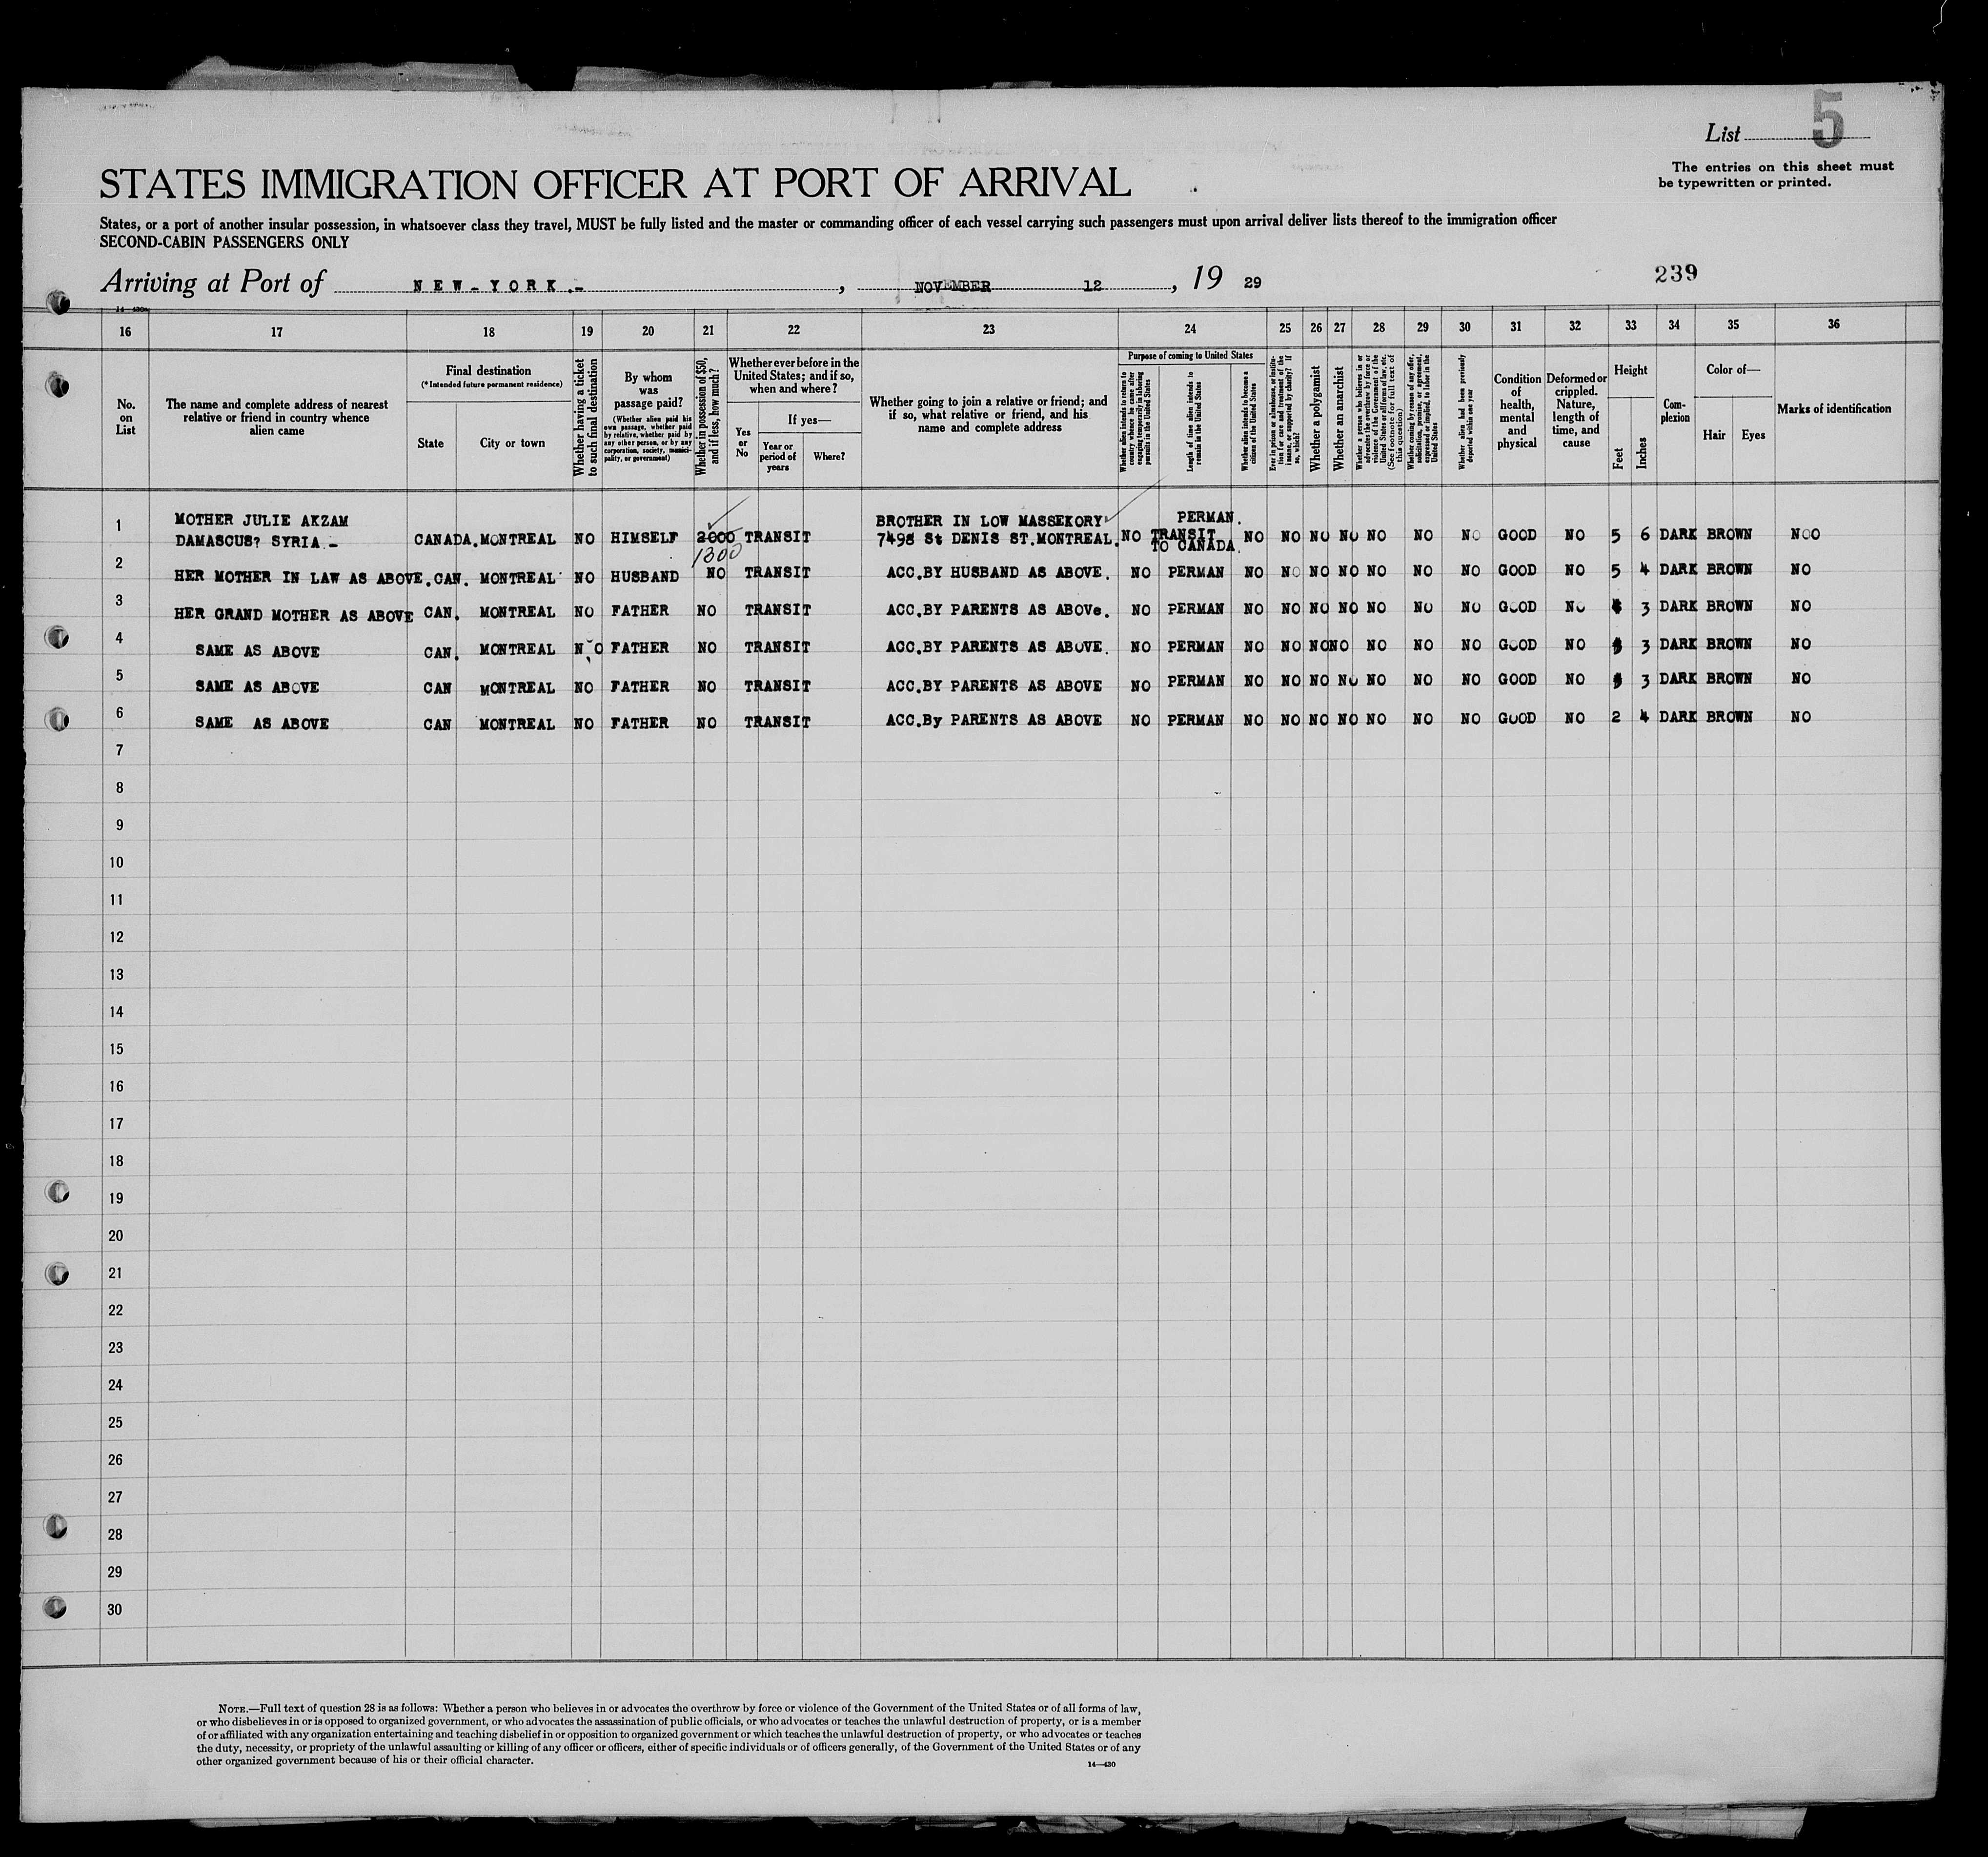 List 5
The entries on this sheet must
be typewritten or printed.
STATES IMMIGRATION OFFICER AT PORT OF ARRIVAL
States, or a port of another insular possession, in whatsoever class they travel, MUST be fully listed and the master or commanding officer of each vessel carrying such passengers must upon arrival deliver lists thereof to the immigration officer
SECOND-CABIN PASSENGERS ONLY
Arriving at Port of NEW-YORK.- , NOVEMBER 12 , 19 29
239
16 17 18 19 20 21 22 23 24 25 26 27 28 29 30 31 32 33 34 35 36
No. on List
The name and complete address of nearest relative or friend in country whence alien came
Final destination
(*Intended future permanent residence)
State
City or town
Whether having a ticket to such final destination
By whom was passage paid?
(Whether alien paid his own passage, whether paid by relative, whether paid by any other person, or by any corporation, society, municipality, or government)
Whether in possession of $50, and if less, how much?
Whether ever before in the United States; and if so, when and where?
Yes or No
If yes—
Year or period of years
Where?
Whether going to join a relative or friend; and if so, what relative or friend, and his name and complete address
Purpose of coming to United States
Whether alien intends to return to country whence he came after engaging temporarily in laboring pursuits in the United States
Length of time alien intends to remain in the United States
Whether alien intends to become a citizen of the United States
Ever in prison or almshouse, or institution for care and treatment of the insane, or supported by charity? If so, which?
Whether a polygamist
Whether an anarchist
Whether a person who believes in or advocates the overthrow by force or violence of the Government of the United States or all forms of law, etc. (See footnote for full text of this question)
Whether coming by reason of any offer, solicitation, promise, or agreement, expressed or implied, to labor in the United States
Whether alien had been previously deported within one year
Condition of health, mental and physical
Deformed or crippled. Nature, length of time, and cause
Height
Feet
Inches
Complexion
Color of—
Hair
Eyes
Marks of identification
1 MOTHER JULIE AKZAM BROTHER IN LOW MASSEKORY PERMAN.
DAMASCUS? SYRIA.- CANADA. MONTREAL NO HIMSELF 2000 TRANSIT 7498 St DENIS ST.MONTREAL. NO TRANSIT NO NO NO NO NO NO NO GOOD NO 5 6 DARK BROWN NOO
1300 TO CANADA.
2 HER MOTHER IN LAW AS ABOVE. CAN. MONTREAL NO HUSBAND NO TRANSIT ACC.BY HUSBAND AS ABOVE. NO PERMAN NO NO NO NO NO NO NO GOOD NO 5 4 DARK BROWN NO
3 HER GRAND MOTHER AS ABOVE CAN. MONTREAL NO FATHER NO TRANSIT ACC.BY PARENTS AS ABOVe. NO PERMAN NO NO NO NO NO NO NO GOOD NO 3 DARK BROWN NO
4 SAME AS ABOVE CAN. MONTREAL NO FATHER NO TRANSIT ACC.BY PARENTS AS ABOVE. NO PERMAN NO NO NO NO NO NO NO GOOD NO 3 DARK BROWN NO
5 SAME AS ABOVE CAN MONTREAL NO FATHER NO TRANSIT ACC.BY PARENTS AS ABOVE NO PERMAN NO NO NO NO NO NO NO GOOD NO 3 DARK BROWN NO
6 SAME AS ABOVE CAN MONTREAL NO FATHER NO TRANSIT ACC.By PARENTS AS ABOVE NO PERMAN NO NO NO NO NO NO NO GOOD NO 2 4 DARK BROWN NO
7
8
9
10
11
12
13
14
15
16
17
18
19
20
21
22
23
24
25
26
27
28
29
30
NOTE.—Full text of question 28 is as follows: Whether a person who believes in or advocates the overthrow by force or violence of the Government of the United States or of all forms of law,
or who disbelieves in or is opposed to organized government, or who advocates the assassination of public officials, or who advocates or teaches the unlawful destruction of property, or is a member
of or affiliated with any organization entertaining and teaching disbelief in or opposition to organized government or which teaches the unlawful destruction of property, or who advocates or teaches
the duty, necessity, or propriety of the unlawful assaulting or killing of any officer or officers, either of specific individuals or of officers generally, of the Government of the United States or of any
other organized government because of his or their official character.
14—430